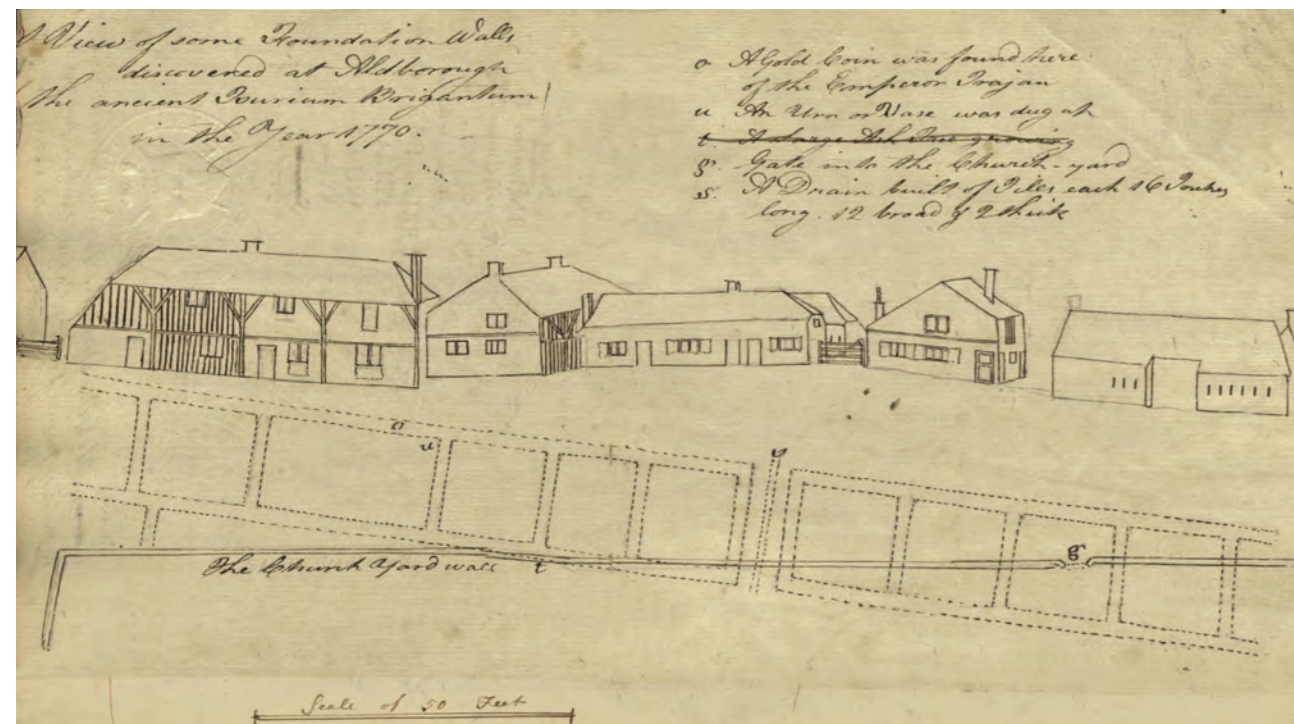 A View of some Foundation Walls
discovered at Aldborough
(the ancient Isurium Brigantum)
in the Year 1770.
o A Gold Coin was found here
of the Emperor Trajan
u An Urn or Vase was dug up
t A Large Ash Tree growing
g. Gate into the Church-yard
s. A Drain built of Tiles each 16 Inches
long. 12 broad & 2 thick
o
u
s
g
The Church Yard wall t
Scale of 50 Feet